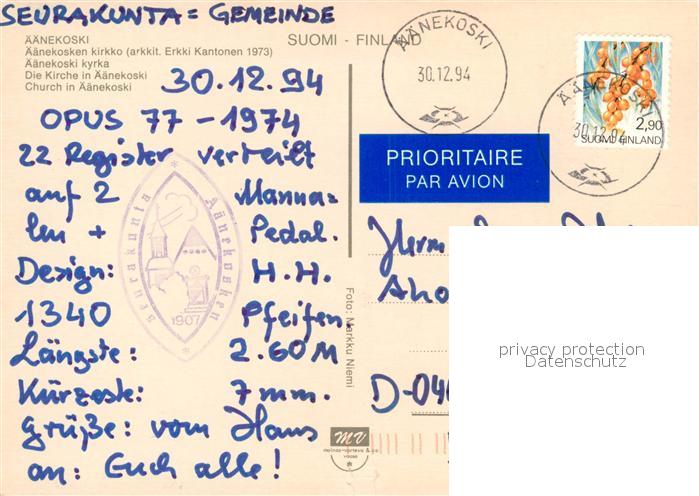 SEURAKUNTA = GEMEINDE
ÄÄNEKOSKI
Äänekosken kirkko (arkkit. Erkki Kantonen 1973)
Äänekoski kyrka
Die Kirche in Äänekoski
Church in Äänekoski
SUOMI - FINLAND
30.12.94
OPUS 77 - 1974
22 Register verteilt
auf 2 Manua-
len + Pedal.
Design: H.H.
1340 Pfeifen.
Längste: 2.60 M
Kürzeste: 7 mm.
grüße: vom Hans
an: Euch alle!
seurakunta Äänekosken
1907
Foto: Markku Niemi
MV
ÄÄNEKOSKI
30.12.94
ÄÄNEKOSKI
30.12.94
2,90
SUOMI FINLAND
PRIORITAIRE
PAR AVION
Herrn
D-04
privacy protection
Datenschutz